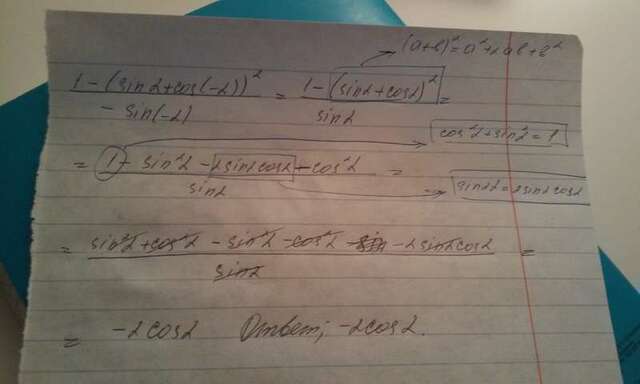 (a+b)²=a²+2ab+b²
1-(sinα+cos(-α))² / -sin(-α) = 1-(sinα+cosα)² / sinα =
cos²α+sin²α=1
= 1-sin²α-2sinαcosα-cos²α / sinα =
sin2α=2sinαcosα
= sin²α+cos²α-sin²α-cos²α-2sinαcosα / sinα =
= -2cosα Ответ: -2cosα.